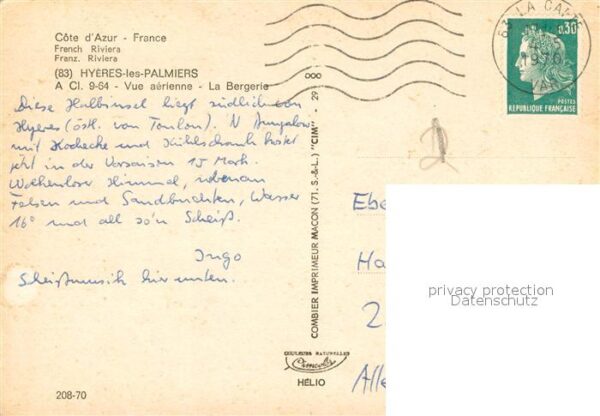 Côte d'Azur - France
French Riviera
Franz. Riviera
(83) HYÈRES-les-PALMIERS
A Cl. 9-64 - Vue aérienne - La Bergerie
Diese Halbinsel liegt südlich von
Hyeres (östl. von Toulon). 'N Bungalow
mit Kochecke und Kühlschrank kostet
jetzt in der Vorsaison 15 Mark.
Wolkenloser Himmel,
Felsen und Sandbuchten, Wasser
16° und all so'n Scheiß.
Ingo
Scheißmusik hier unten.
208-70
COMBIER IMPRIMEUR MACON (71. S.-&-L.) "CIM" 29
COULEURS NATURELLES
Cimcolor
HÉLIO
83 LA
1970
VAR
0,30
POSTES
REPUBLIQUE FRANÇAISE
D
Ebe
Ha
2
Alle
privacy protection
Datenschutz